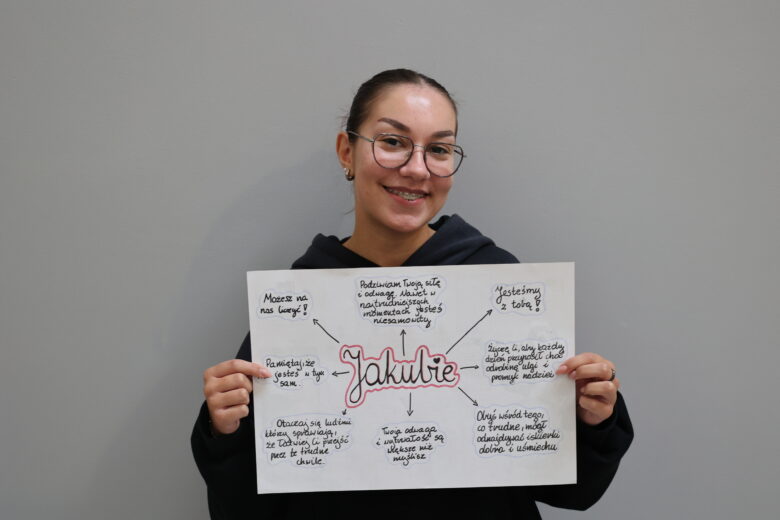 Możesz na
nas liczyć!
Podziwiam Twoją siłę
i odwagę. Nawet w
najtrudniejszych
momentach jesteś
niesamowity
Jesteśmy
z tobą!
Pamiętaj, że
jesteś w tym
sam.
Jakubie
Życzę Ci, aby każdy
dzień przynosił choć
odrobinę ulgi i
promyk nadziei
Otaczaj się ludźmi
którzy sprawiają,
że łatwiej Ci przejść
przez te trudne
chwile.
Twoja odwaga
i wytrwałość są
większe niż
myślisz
Obyś wśród tego,
co trudne, mógł
odnajdywać iskierki
dobra i uśmiechu